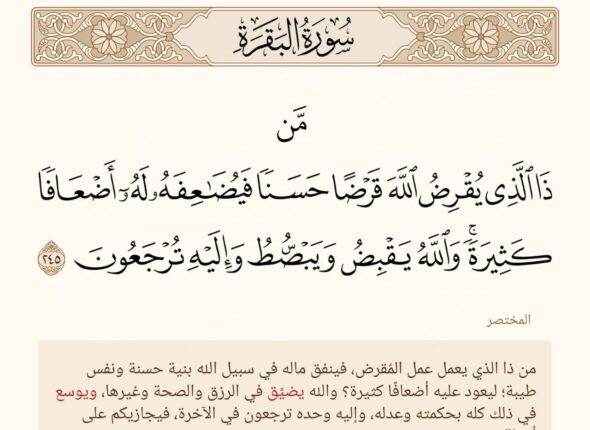 سُورَةُ البَقَرَةِ
مَّن
ذَا ٱلَّذِى يُقْرِضُ ٱللَّهَ قَرْضًا حَسَنًا فَيُضَـٰعِفَهُۥ لَهُۥٓ أَضْعَافًا
كَثِيرَةً ۚ وَٱللَّهُ يَقْبِضُ وَيَبْصُۜطُ وَإِلَيْهِ تُرْجَعُونَ ٢٤٥
المختصر
من ذا الذي يعمل عمل المُقرض، فينفق ماله في سبيل الله بنية حسنة ونفس
طيبة؛ ليعود عليه أضعافًا كثيرة؟ والله يضيِّق في الرزق والصحة وغيرها، ويوسع
في ذلك كله بحكمته وعدله، وإليه وحده ترجعون في الآخرة، فيجازيكم على